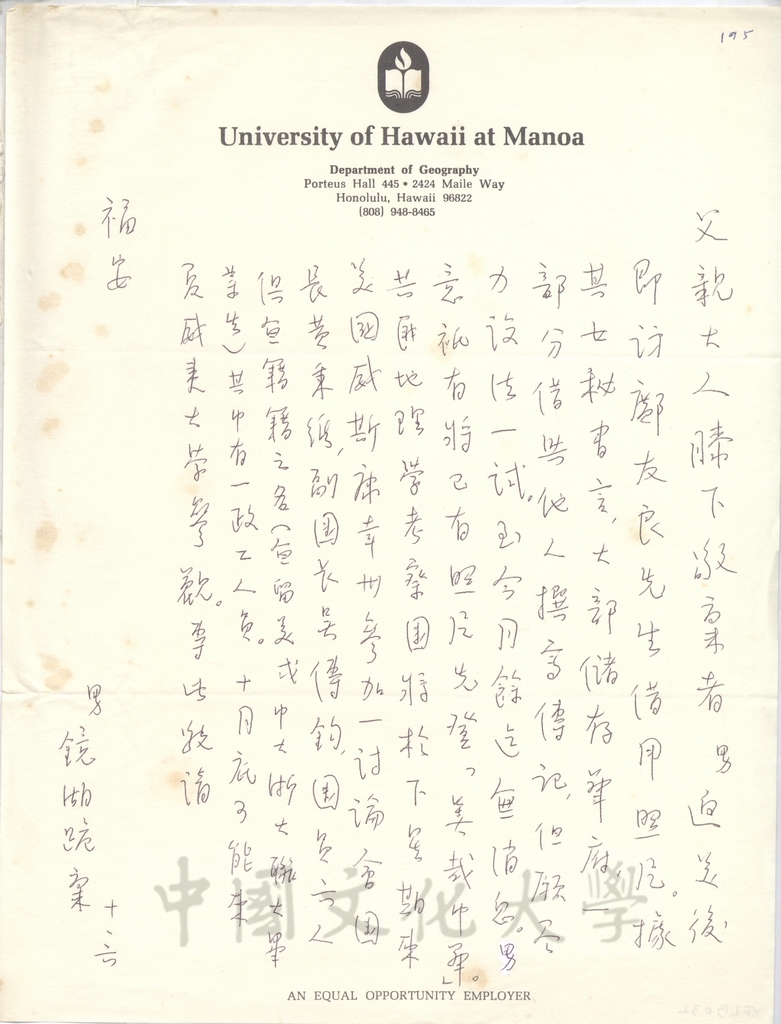 195
University of Hawaii at Manoa
Department of Geography
Porteus Hall 445 • 2424 Maile Way
Honolulu, Hawaii 96822
(808) 948-8465
父親大人膝下敬稟者 男返美後
即訪鄺友良先生借用照片。據
其女秘書言，大部儲存華府，一
部分借與他人撰寫傳記，但願合
力設法一試。至今月餘迄無消息。男
意祇有將已有照片先登「美哉中華」。
共匪地理學考察團將於下星期來
美國威斯康辛州參加一討論會團
長黃秉維，副團長吳傳鈞，團員六人
俱無籍籍之名（無留美或中大浙大聯大畢
業生）其中有一政工人員。十月底可能來
夏威夷大學參觀。專此敬請
福安
男 鏡湖跪稟 十、六
中國文化大學
AN EQUAL OPPORTUNITY EMPLOYER